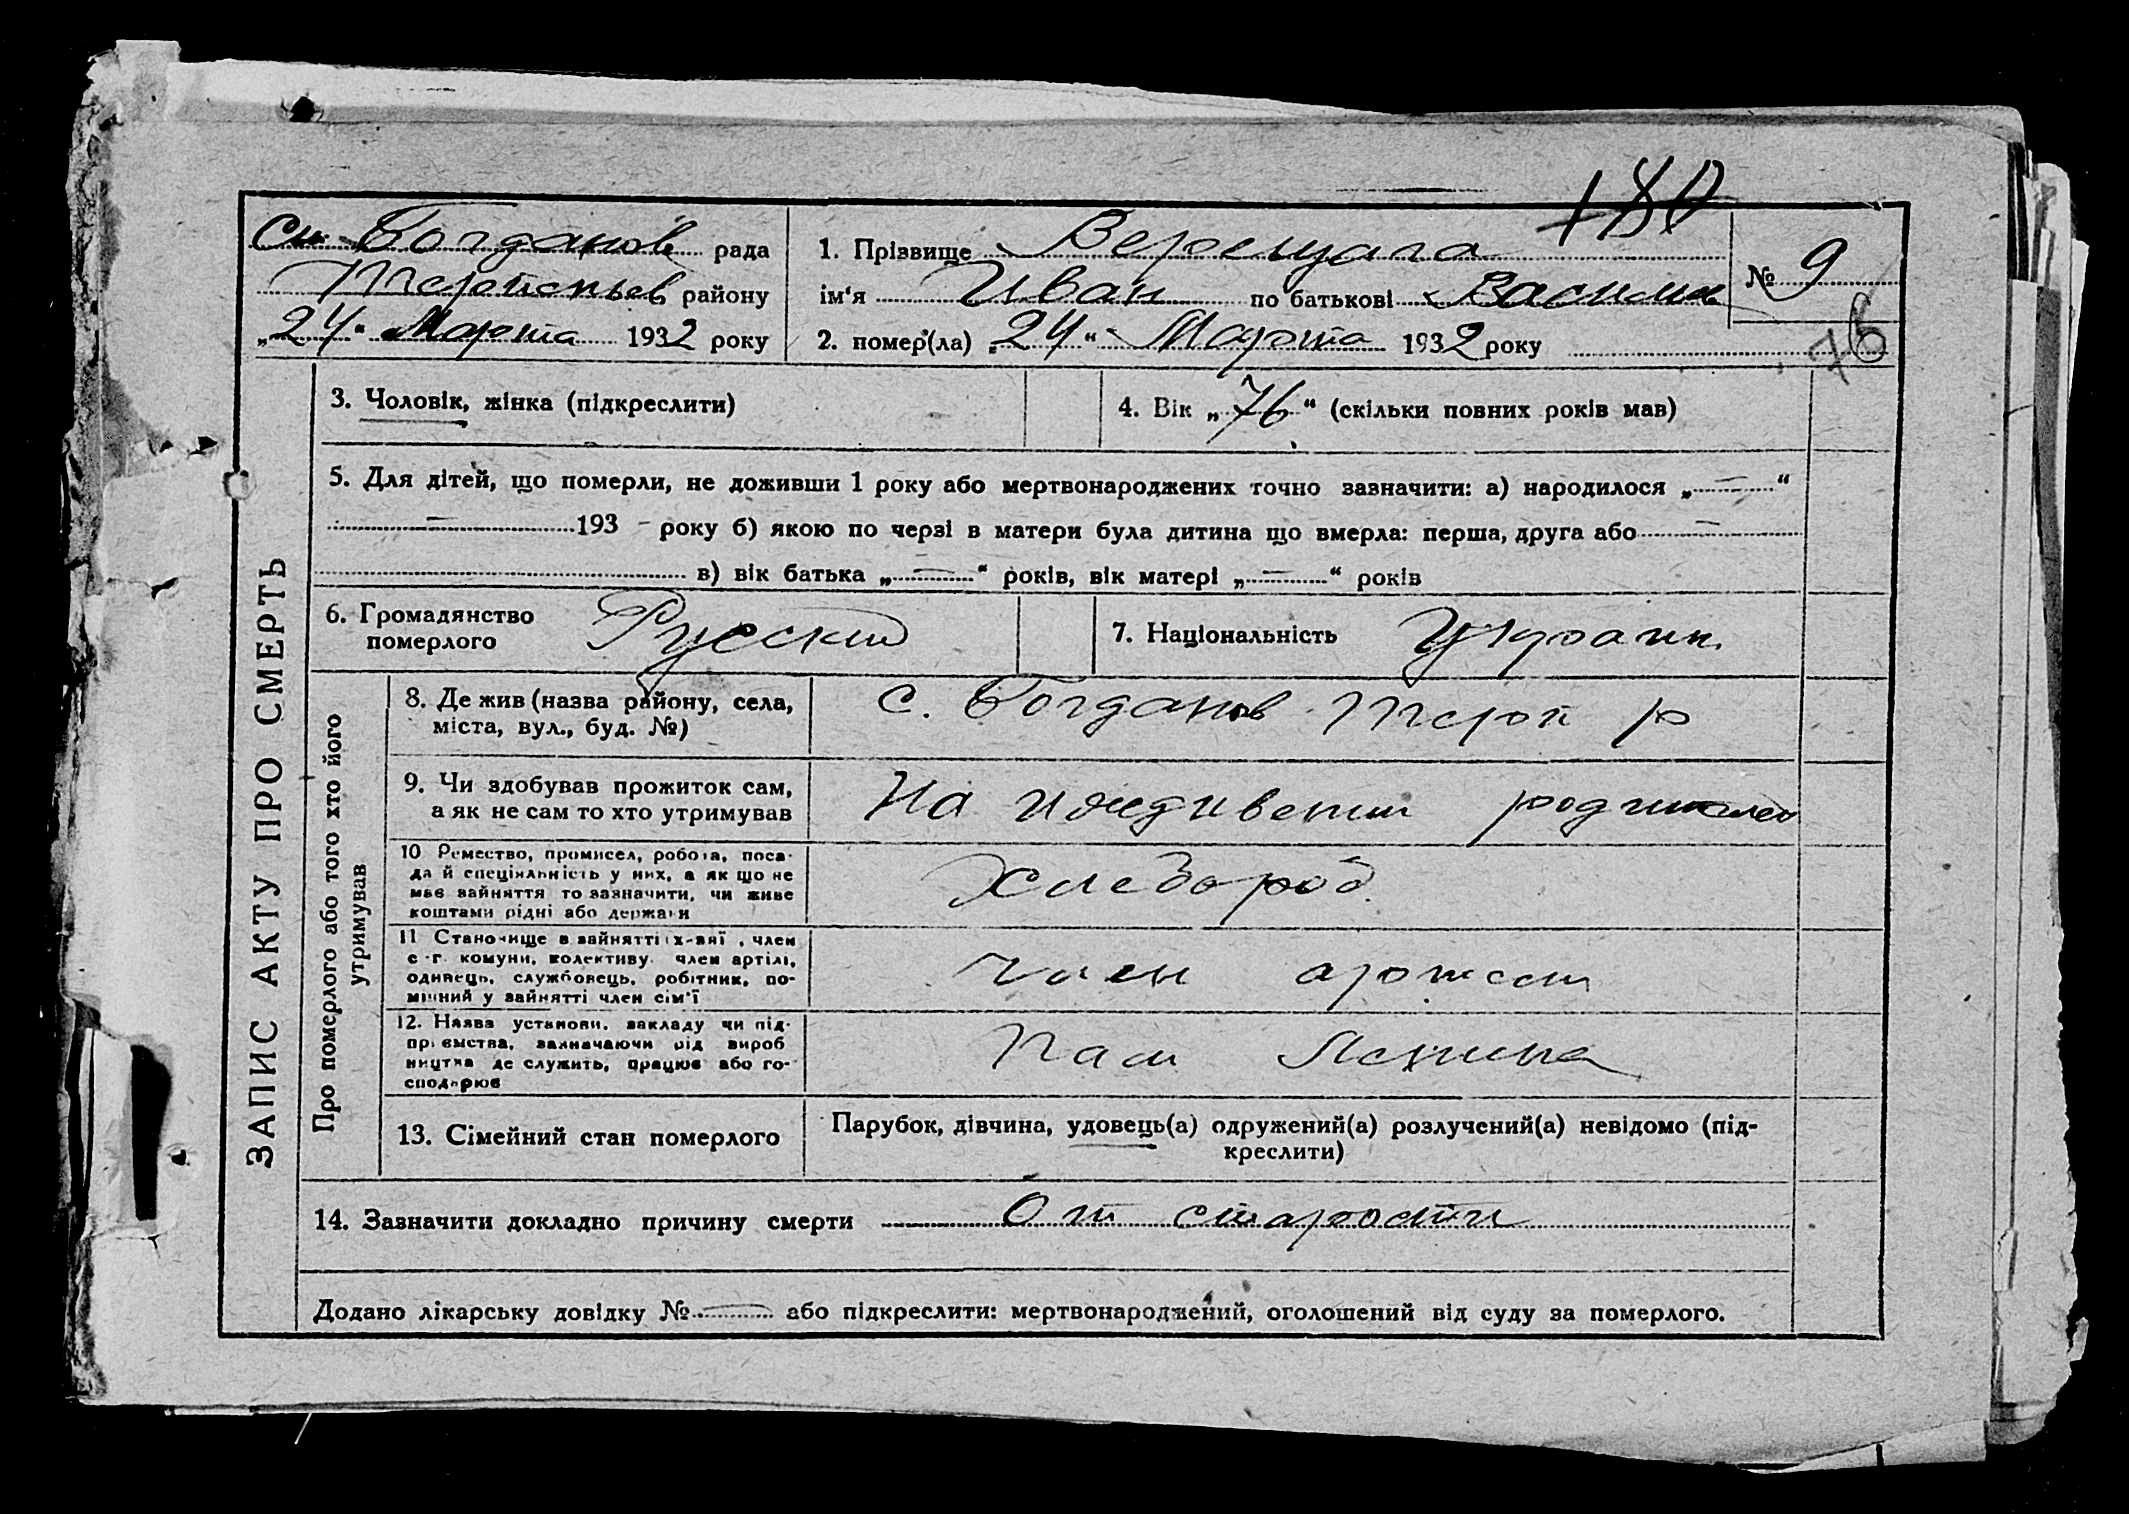 180
Си Богданов рада
Терпеньев району
„24" Марта 1932 року
1. Прізвище Верещага
ім'я Иван по батькові Василь
2. помер(ла) „24" Марта 1932 року
№ 9
76
ЗАПИС АКТУ ПРО СМЕРТЬ
3. Чоловік, жінка (підкреслити)
4. Вік „76" (скільки повних років мав)
5. Для дітей, що померли, не доживши 1 року або мертвонароджених точно зазначити: а) народилося „—"
— 193 – року б) якою по черзі в матери була дитина що вмерла: перша, друга або —
в) вік батька „—" років, вік матері „—" років
6. Громадянство
померлого
Русский
7. Національність Украин.
Про померлого або того хто його
утримував
8. Де жив (назва району, села,
міста, вул., буд. №)
с. Богданов Терп р
9. Чи здобував прожиток сам,
а як не сам то хто утримував
На иждивении родителей
10 Ремество, промисел, робота, поса-
да й спеціяльність у них, а як що не
має зайняття то зазначити, чи живе
коштами рідні або держави
Хлебороб.
11 Становище в зайнятті , член
с.-г. комуни, колективу, член артілі,
одинець, службовець, робітник, по-
мічний у зайнятті член сім'ї
член артели
12. Назва установи, закладу чи під-
приємства, зазначаючи рід вироб
ництва де служить, працює або го-
сподарює
Ленина
13. Сімейний стан померлого
Парубок, дівчина, удовець(а) одружений(а) розлучений(а) невідомо (під-
креслити)
14. Зазначити докладно причину смерти От старости
Додано лікарську довідку № — або підкреслити: мертвонароджений, оголошений від суду за померлого.